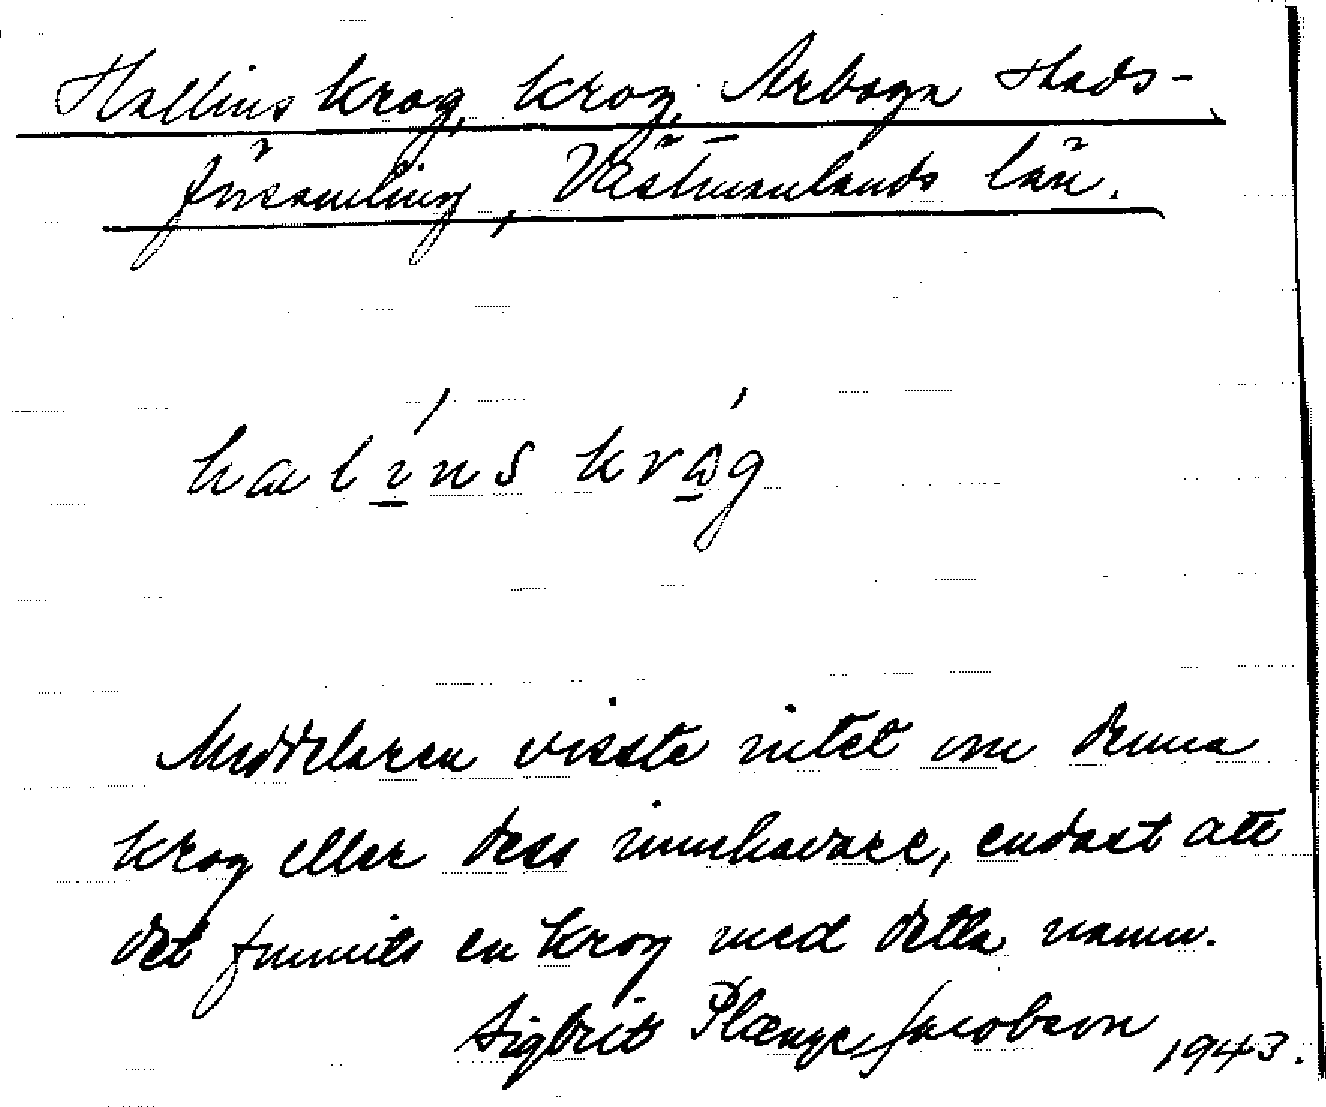 Hallins krog, krog, Arboga stads-
församling, Västmanlands län.
halins kråg
Meddelaren visste intet om denna
krog eller dess innehavare, endast att
det funnits en krog med detta namn.
Sigbrit Plænge Jacobson 1943.